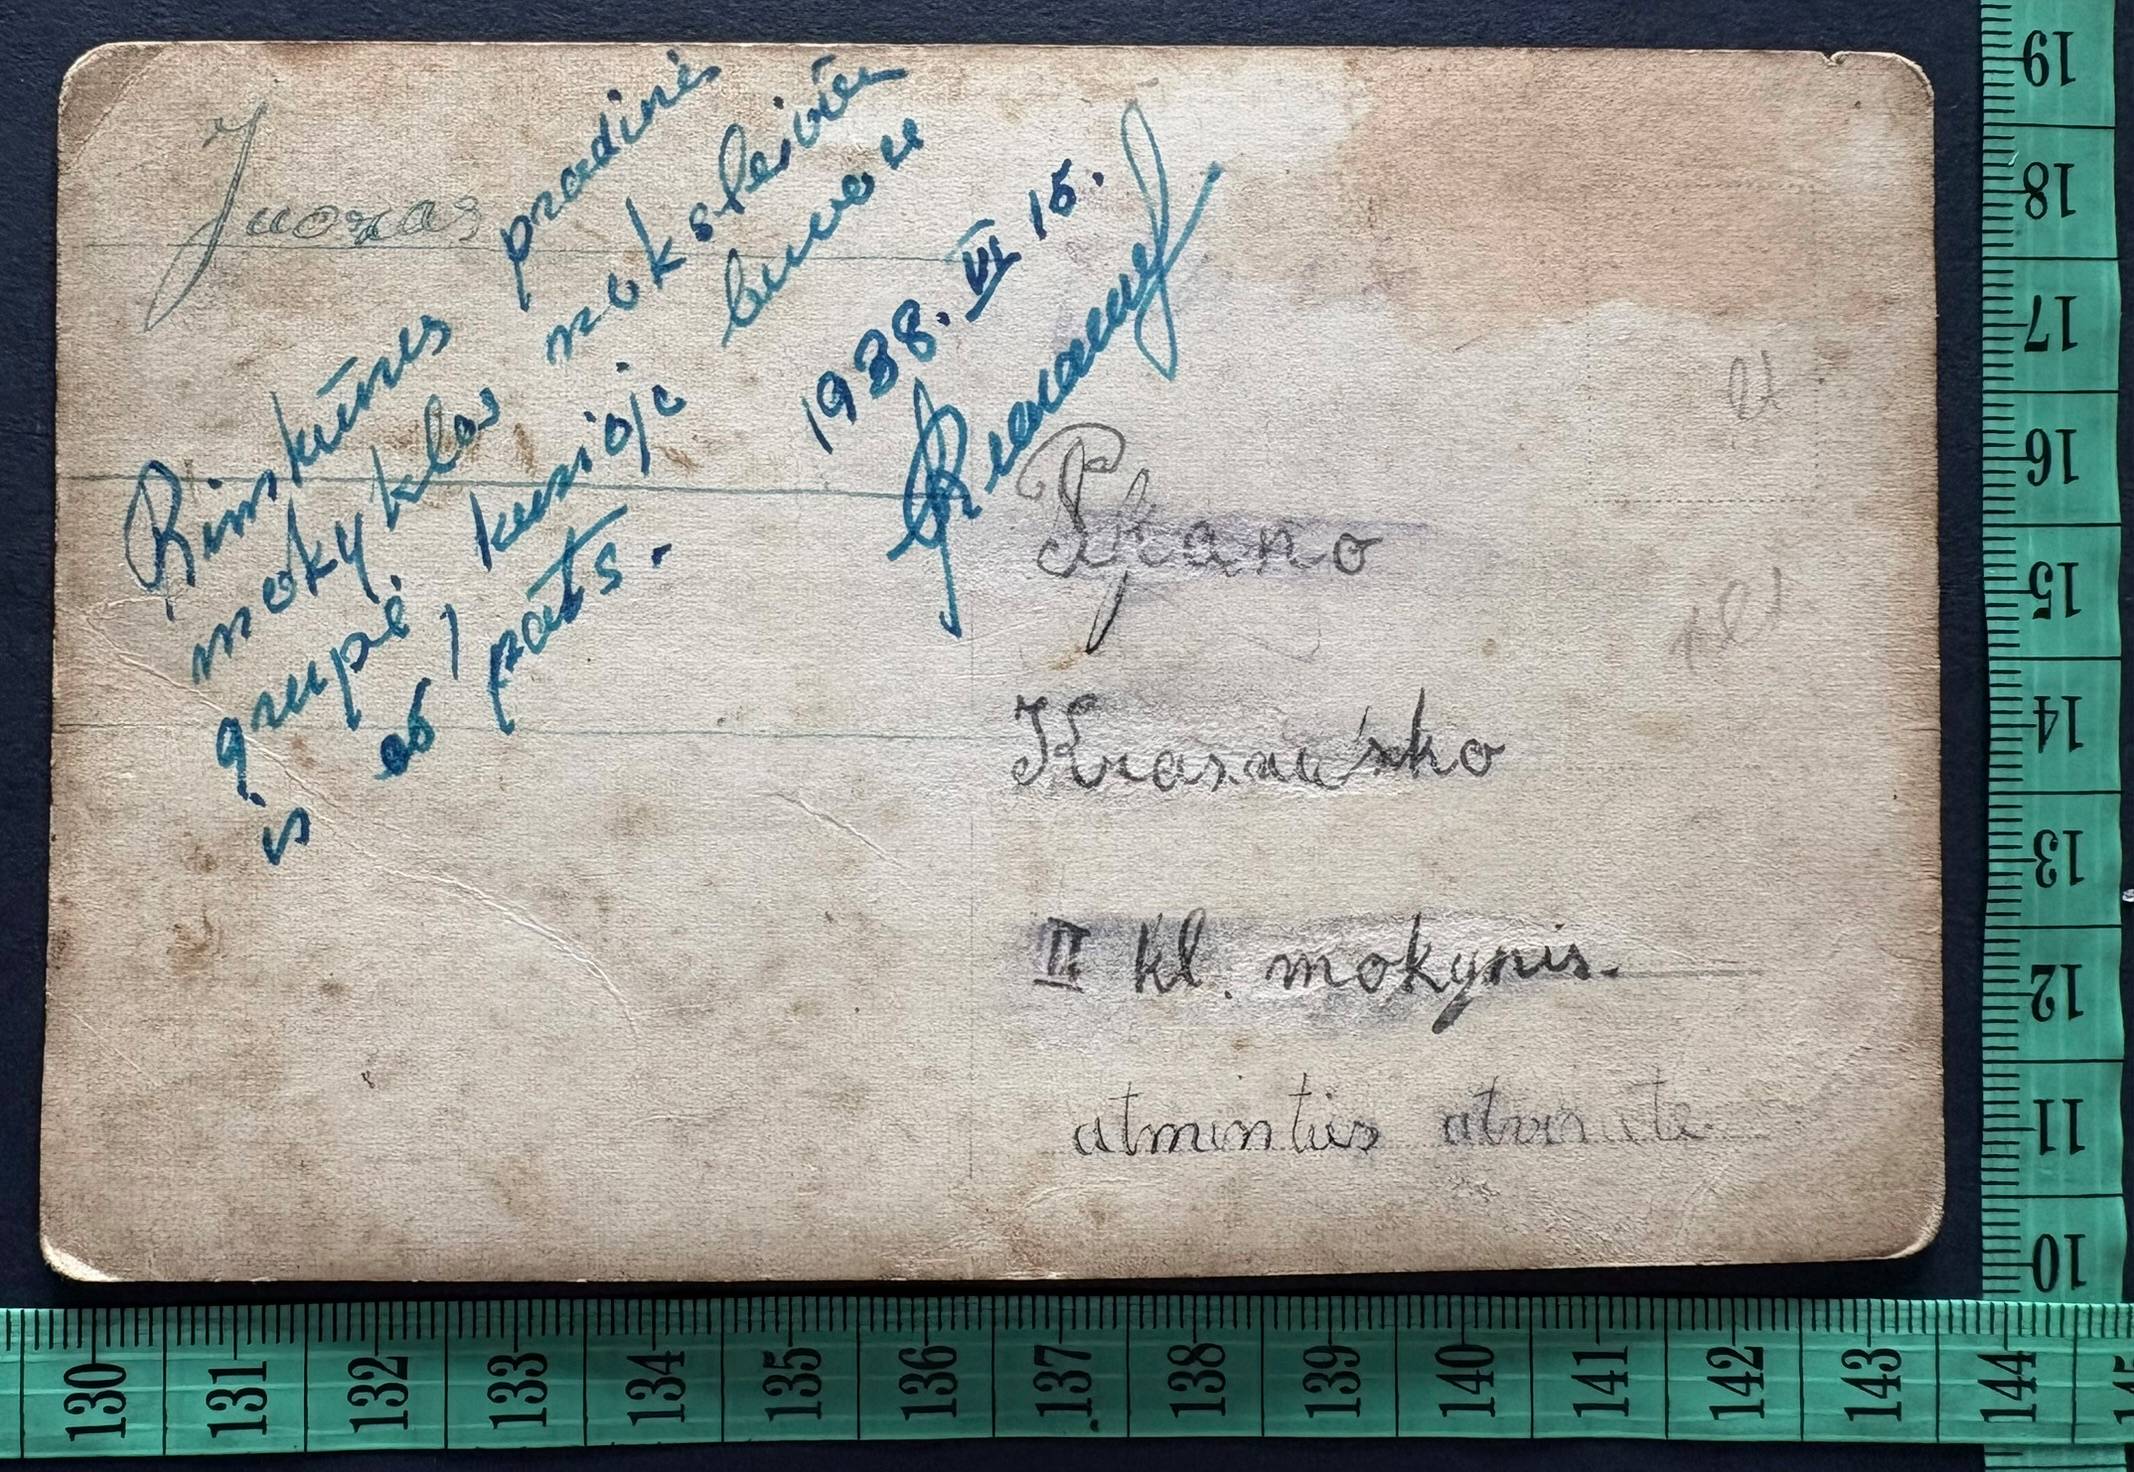 Juozas
Rimkūnes pradinės
mokyklos moksleivių
grupė, kurioje buvau
ir aš pats.
1938. VI 15.
Prano
II kl. mokynis.
atminties atvirutė
19
18
17
16
15
14
13
12
11
10
130 131 132 133 134 135 136 137 138 139 140 141 142 143 144